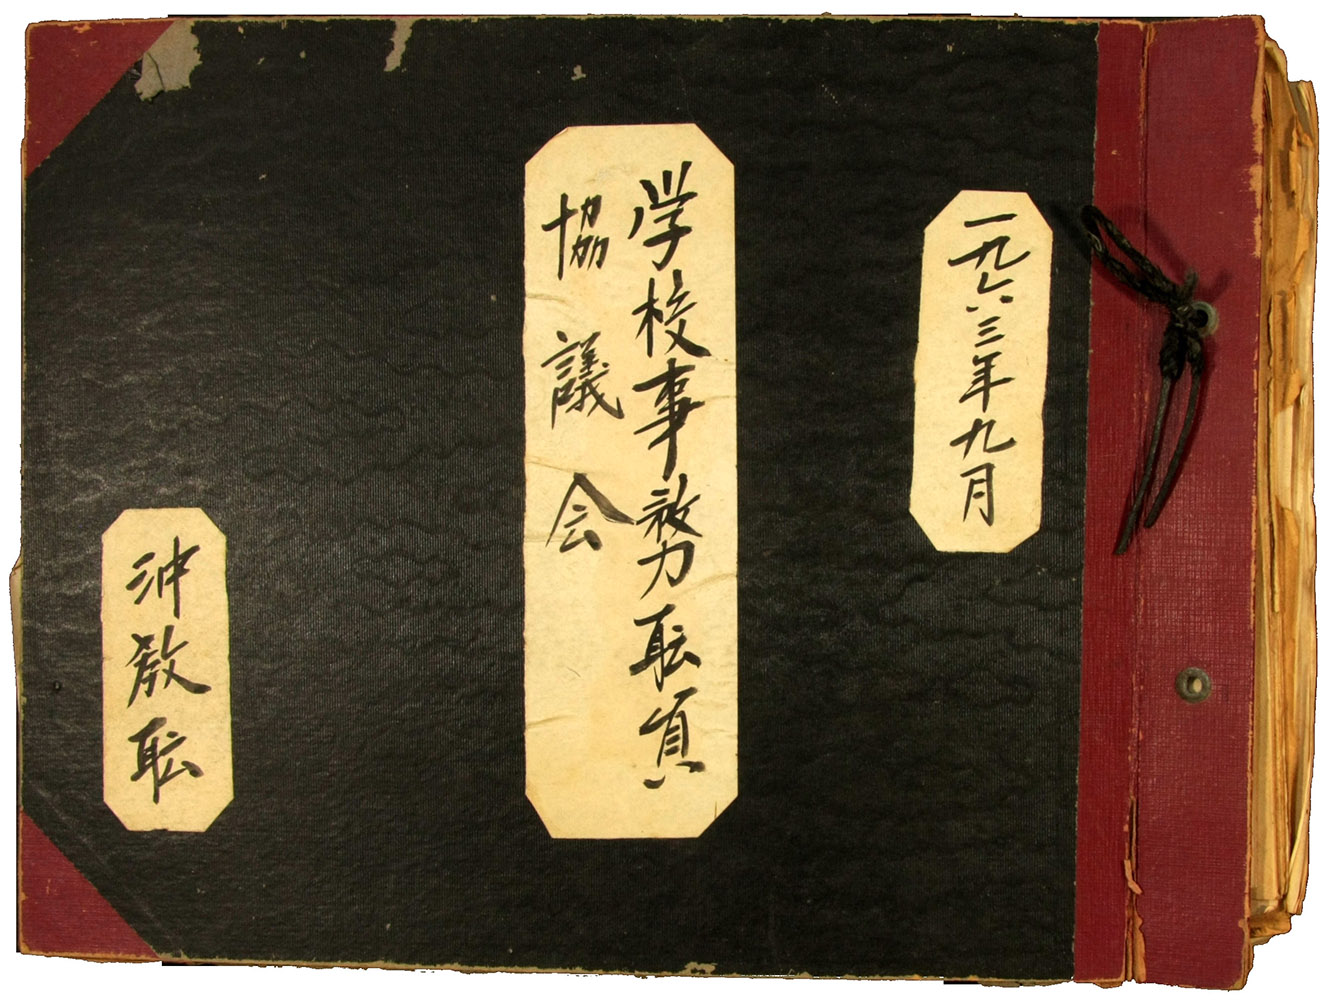 一九六三年九月
学校事務耺員
協議会
沖教耺